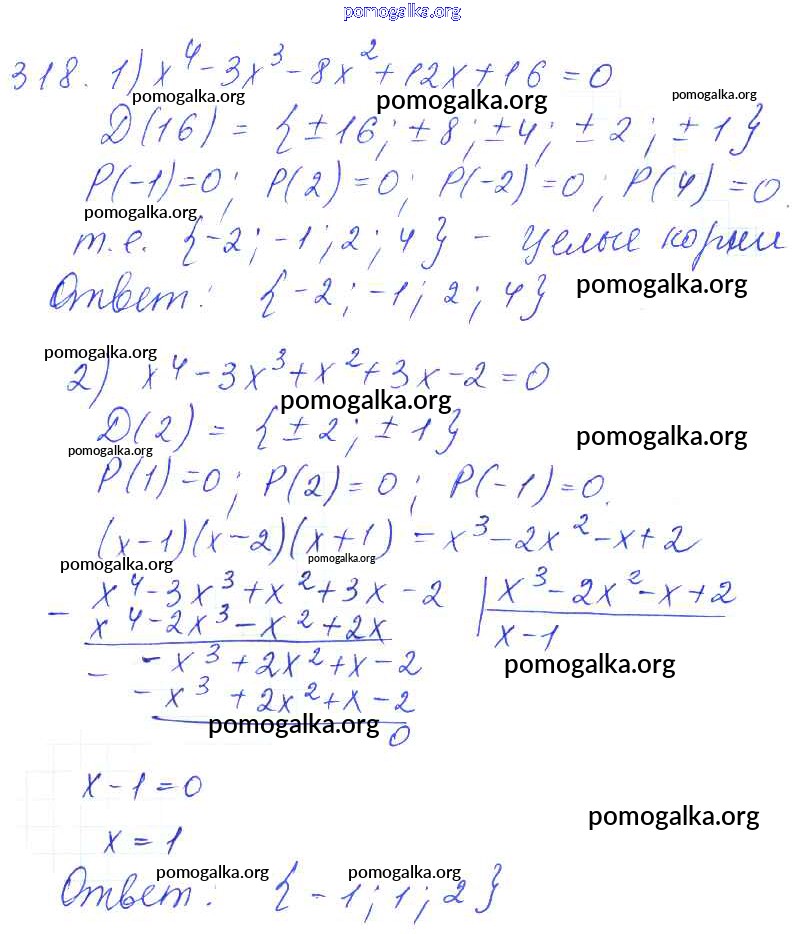 pomogalka.org
318. 1) x⁴ - 3x³ - 8x² + 12x + 16 = 0
pomogalka.org pomogalka.org pomogalka.org
D(16) = {±16; ±8; ±4; ±2; ±1}
P(-1)=0; P(2)=0; P(-2)=0; P(4)=0.
pomogalka.org
т.е. {-2; -1; 2; 4} - целые корни
Ответ: {-2; -1; 2; 4}
pomogalka.org
pomogalka.org
2) x⁴ - 3x³ + x² + 3x - 2 = 0
pomogalka.org
D(2) = {±2; ±1}
pomogalka.org
pomogalka.org
P(1)=0; P(2)=0; P(-1)=0.
(x-1)(x-2)(x+1) = x³ - 2x² - x + 2
pomogalka.org pomogalka.org
- x⁴ - 3x³ + x² + 3x - 2 | x³ - 2x² - x + 2
x⁴ - 2x³ - x² + 2x x - 1
pomogalka.org
- - x³ + 2x² + x - 2
- x³ + 2x² + x - 2
pomogalka.org
0
x - 1 = 0
pomogalka.org
x = 1
pomogalka.org pomogalka.org
Ответ: {-1; 1; 2}